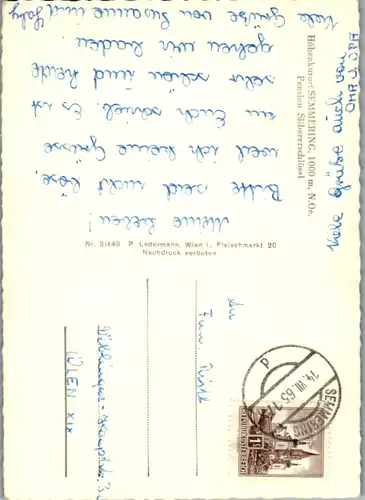 Höhenkurort SEMMERING, 1000 m, N.Oe.
Pension Silbererschlössl
Meine Lieben!
Bitte seid nicht böse,
weil ich keine Grüsse
an Euch schrieb. Es ist
sehr schön und heute
gehen wir baden.
Viele Grüsse von Susanne und Gaby
Viele Grüße auch von
OMA u. OPA
Nr. 31449 P. Ledermann, Wien I., Fleischmarkt 20
Nachdruck verboten
An
Fam.
Döblinger-Hauptstr. 3
WIEN XIX
SEMMERING
14. VII. 65
P
REPUBLIK ÖSTERREICH